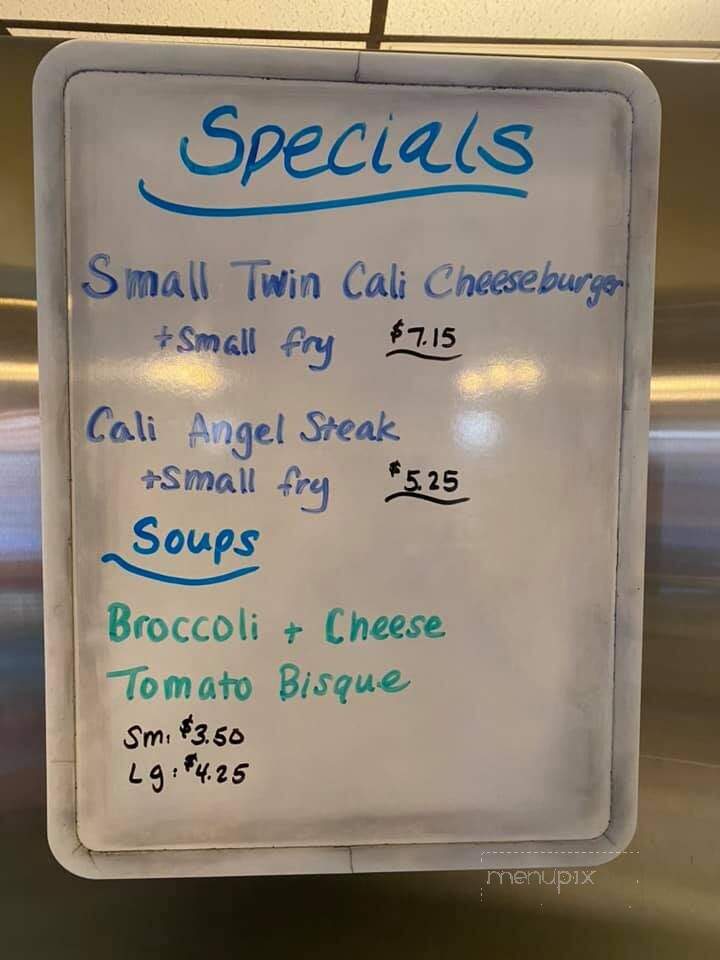 Specials
Small Twin Cali Cheeseburger
+ Small fry $7.15
Cali Angel Steak
+ Small fry $5.25
Soups
Broccoli + Cheese
Tomato Bisque
Sm: $3.50
Lg: $4.25
menupix